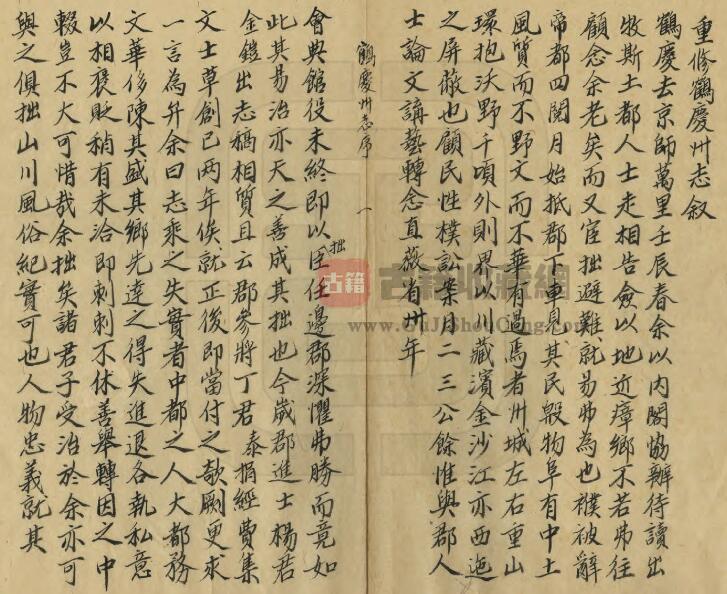 重修鶴慶州志叙
鶴慶去京師萬里壬辰春余以內閣協辦待讀出
牧斯土都人士走相告僉以地近瘴鄉不若弗往
顧念余老矣而又宦拙避難就易弗為也襆被辭
帝都四閱月始抵郡下車見其民殷物阜有中土
風質而不野文而不華有過焉者州城左右重山
環抱沃野千頃外則界以川藏濱金沙江亦西迤
之屏蔽也顧民性樸訟案月二三公餘惟與郡人
士論文講藝轉念直薇省卅年
鶴慶州志序
一
會典館役未終即以拙臣任邊郡深懼弗勝而竟如
此其易治亦天之善成其拙也今歲郡進士楊君
金鎧出志稿相質且云郡參將丁君 泰捐經費集
文士草創已两年俟就正後即當付之欹劂更求
一言為弁余曰志乘之失實者中都之人大都務
文華侈陳其盛其鄉先達之得失進退各執私意
以相褒貶稍有未洽即刺刺不休善舉轉因之中
輟豈不大可惜哉余拙矣諸君子受治於余亦可
與之俱拙山川風俗紀實可也人物忠義就其
古籍收藏網
www.GuJiShouCang.com